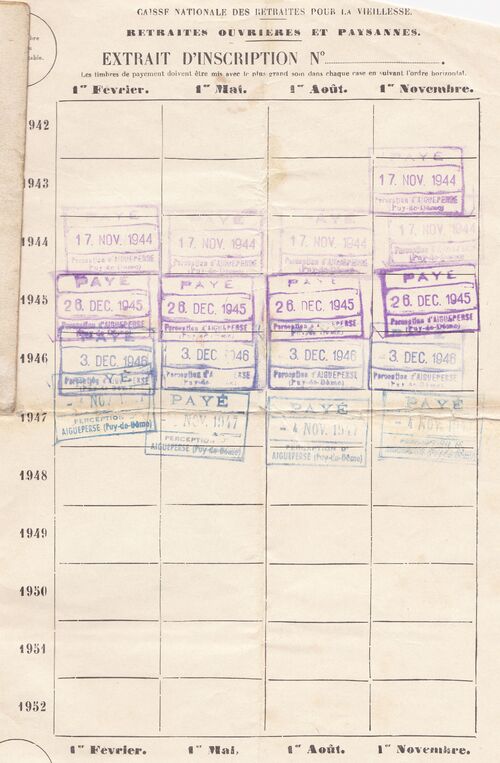 CAISSE NATIONALE DES RETRAITES POUR LA VIEILLESSE.
RETRAITES OUVRIERES ET PAYSANNES.
EXTRAIT D'INSCRIPTION N°
Les timbres de payement doivent être mis avec le plus grand soin dans chaque case en suivant l'ordre horizontal.
1er Février. 1er Mai. 1er Août. 1er Novembre.
1942
1943
PAYÉ
17. NOV. 1944
Perception d'AIGUEPERSE
(Puy-de-Dôme)
1944
PAYÉ PAYÉ PAYÉ PAYÉ
17. NOV. 1944 17. NOV. 1944 17. NOV. 1944 17. NOV. 1944
Perception d'AIGUEPERSE Perception d'AIGUEPERSE Perception d'AIGUEPERSE Perception d'AIGUEPERSE
(Puy-de-Dôme) (Puy-de-Dôme) (Puy-de-Dôme) (Puy-de-Dôme)
1945
PAYÉ PAYÉ PAYÉ PAYÉ
26. DEC. 1945 26. DEC. 1945 26. DEC. 1945 26. DEC. 1945
Perception d'AIGUEPERSE Perception d'AIGUEPERSE Perception AIGUEPERSE Perception d'AIGUEPERSE
(Puy-de-Dôme)
1946
PAYÉ
3. DEC. 1946 3. DEC. 1946 3. DEC. 1946 3. DEC. 1946
Perception d'AIGUEPERSE Perception d'AIGUEPERSE
1947
PAYÉ PAYÉ PAYÉ PAYÉ
NOV. NOV. 1947 - 4 NOV. 1947 - 4 NOV. 1947
PERCEPTION D' PERCEPTION D' PERCEPTION D'
AIGUEPERSE (Puy-de-Dôme) AIGUEPERSE (Puy-de-Dôme) AIGUEPERSE (Puy-de-Dôme)
1948
1949
1950
1951
1952
1er Février. 1er Mai. 1er Août. 1er Novembre.